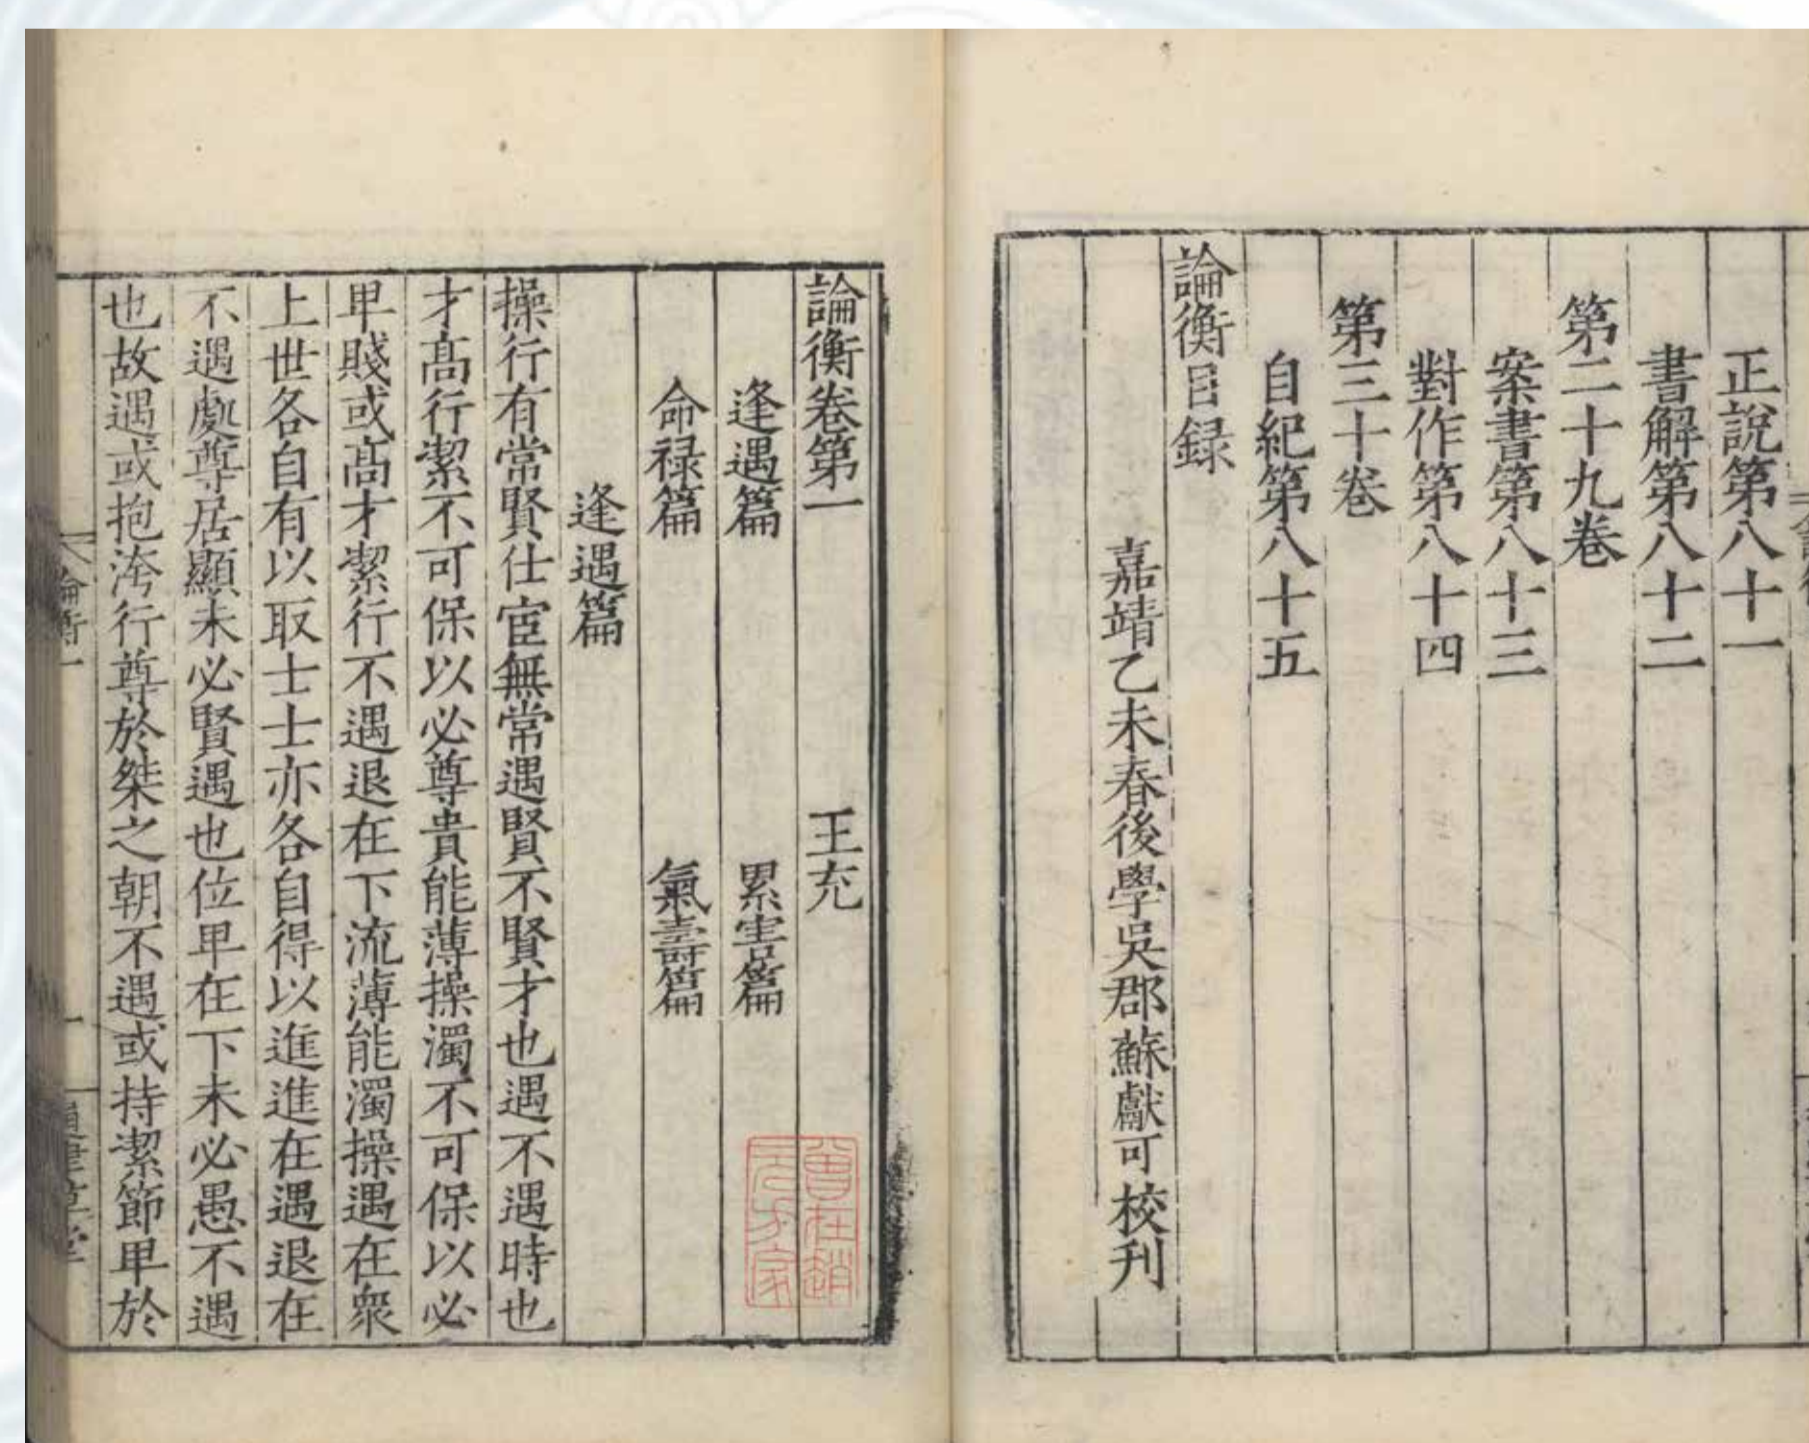 正說第八十一
書解第八十二
第二十九卷
案書第八十三
對作第八十四
第三十卷
自紀第八十五
論衡目録
嘉靖乙未春後學吳郡蘇獻可校刊
論衡卷第一 王充
逢遇篇 累害篇
命禄篇 氣壽篇
逢遇篇
操行有常賢仕宦無常遇賢不賢才也遇不遇時也
才髙行潔不可保以必尊貴能薄操濁不可保以必
卑賤或髙才潔行不遇退在下流薄能濁操遇在衆
上世各自有以取士士亦各自得以進進在遇退在
不遇處尊居顯未必賢遇也位卑在下未必愚不遇
也故遇或抱洿行尊於桀之朝不遇或持潔節卑於
論衡一
一
通津草堂
曾在趙
元方家